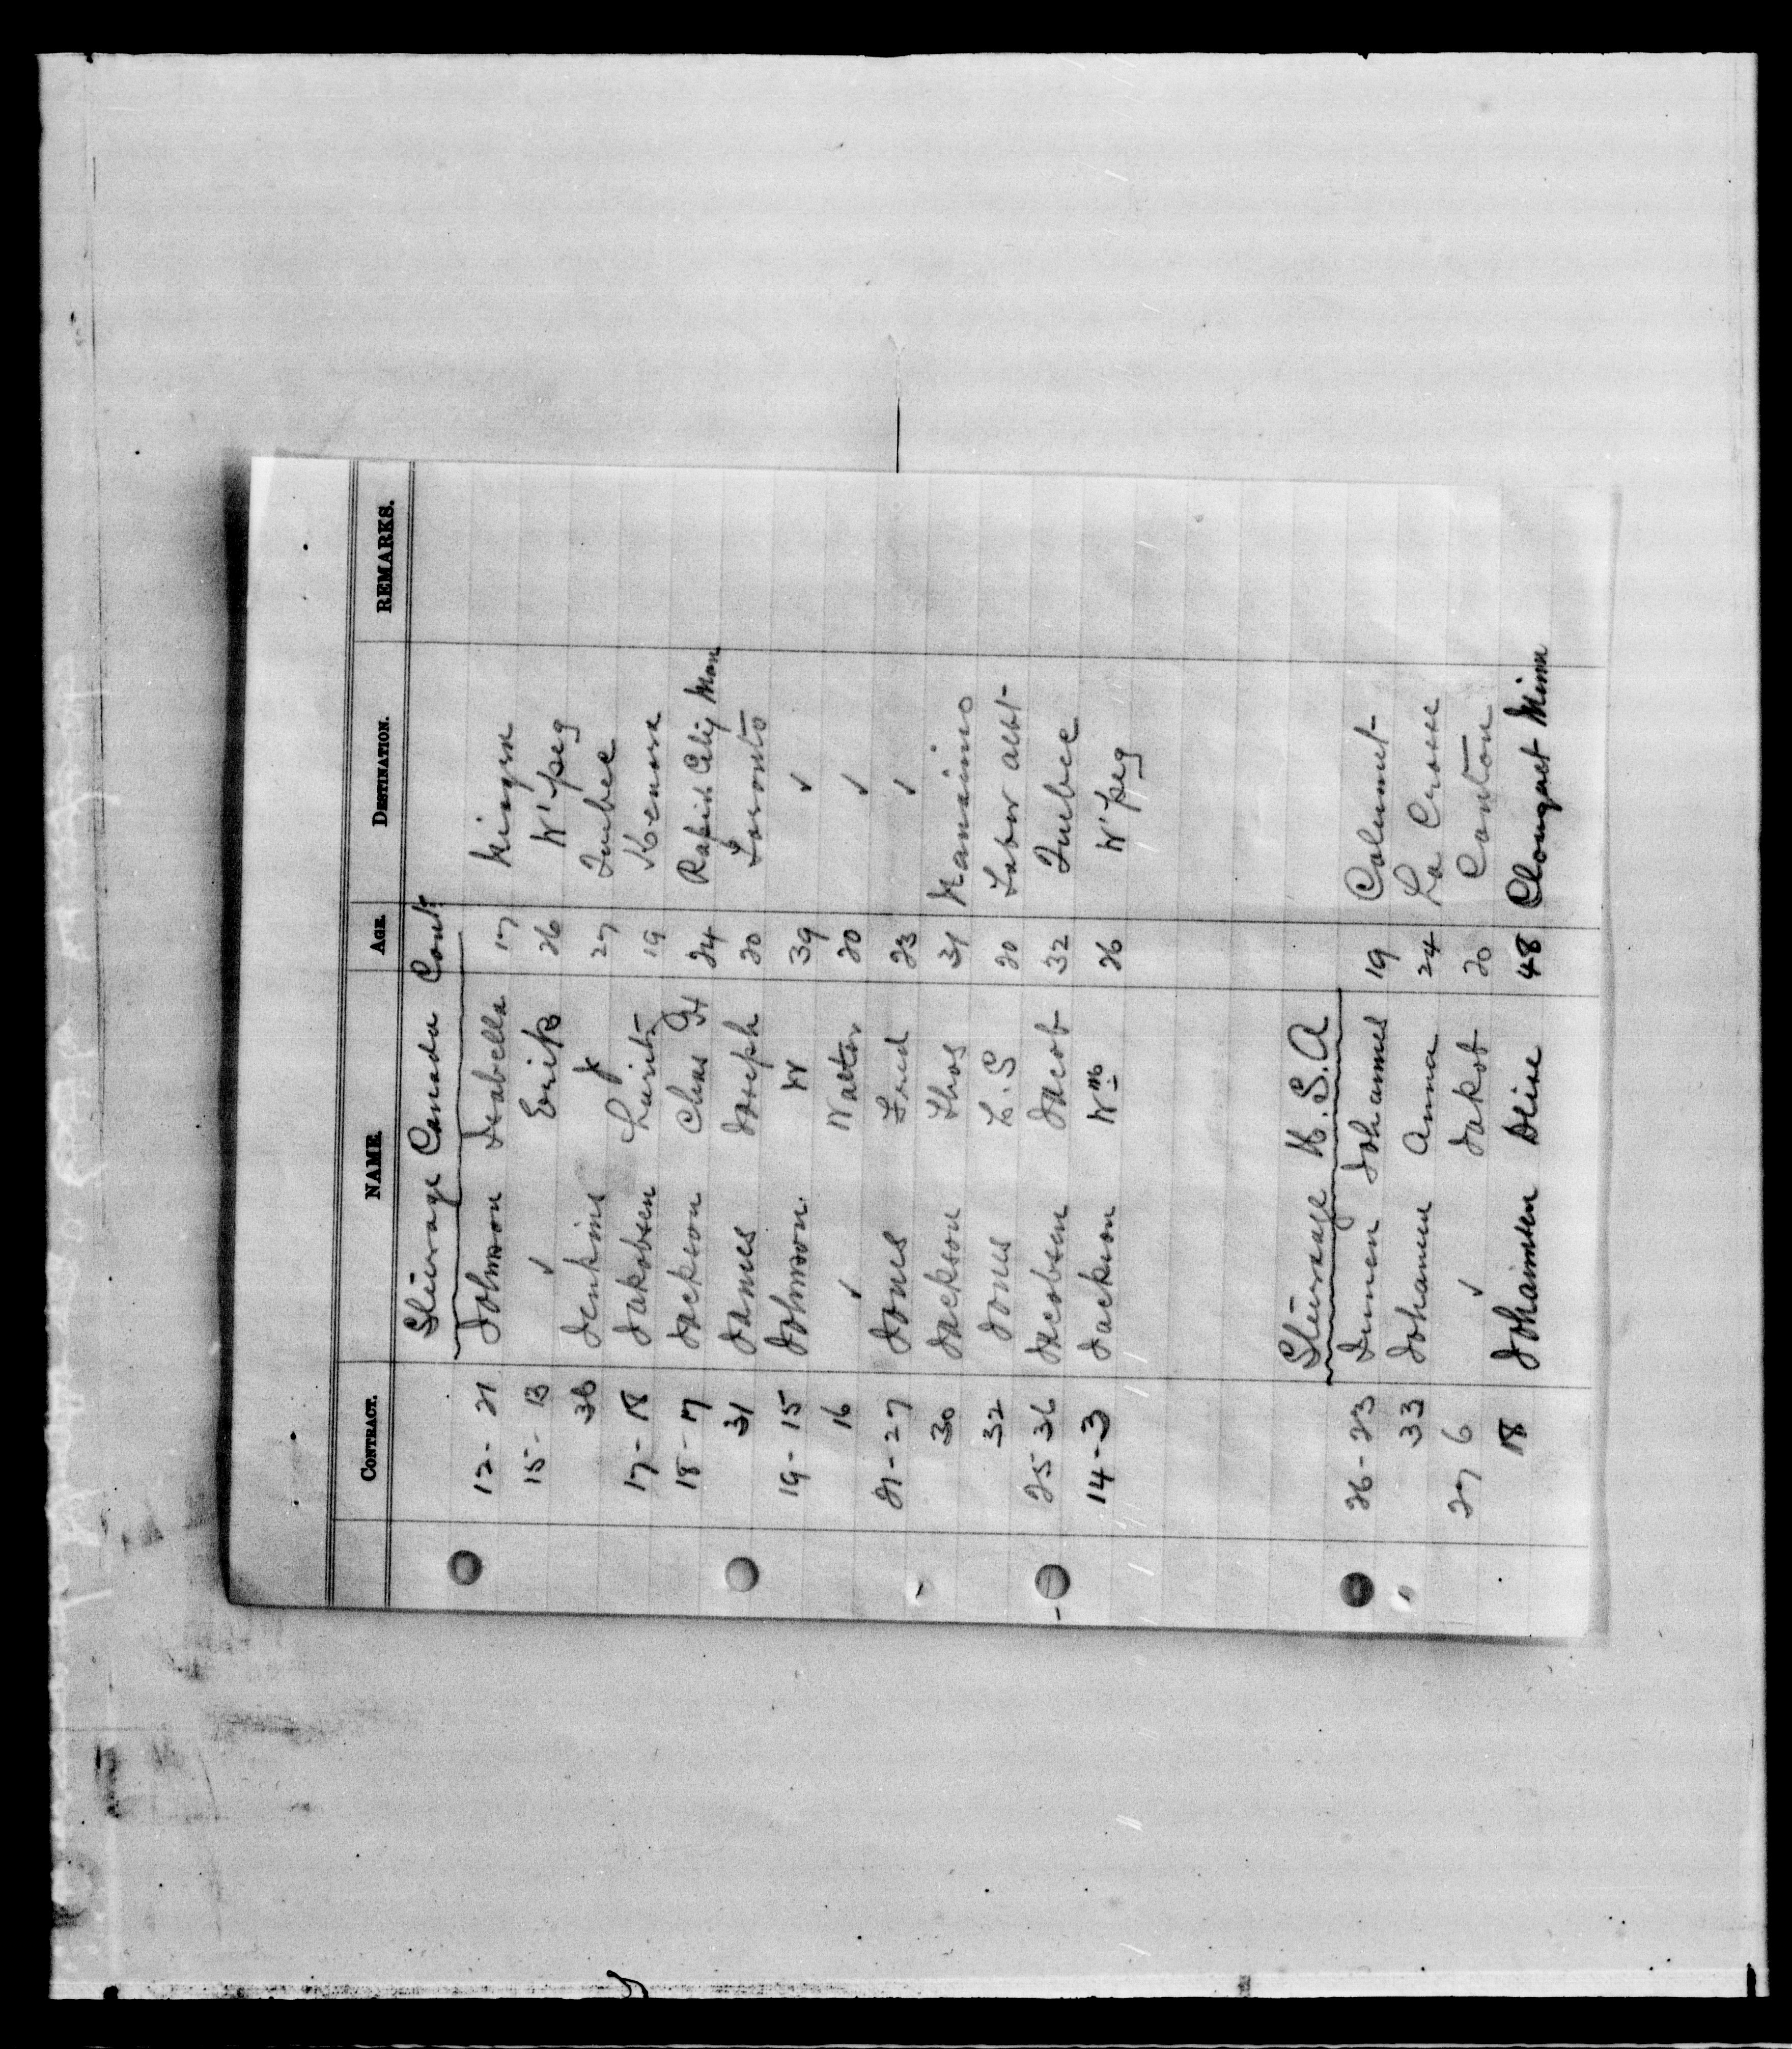 CONTRACT. NAME. AGE. DESTINATION. REMARKS.
Steerage Canada Cont
12-21 Johnson Isabella 17
15-13 ✓ Erik 26 W'peg
36 Jenkins 27 Quebec
17-18 Jakobsen Laurits 19 Kenora
18-7 Jackson Chas H 24 Rapid City Man
31 James Joseph 20 Toronto
19-15 Johnson W 39 ✓
16 ✓ Walter 20 ✓
21-27 Jones Fred 23 ✓
30 Jackson Thos 31 Nanaimo
32 Jones L.S 20 Tabor Albt
25 36 Jacobsen Jacob 32 Quebec
14-3 Jackson Wm 26 W'peg
Steerage U.S.A
26-23 Johannes 19 Calumet
33 Johanne Anna 24 La Crosse
27 6 ✓ Jakob 20 Canton
18 Johannsen 48 Minn